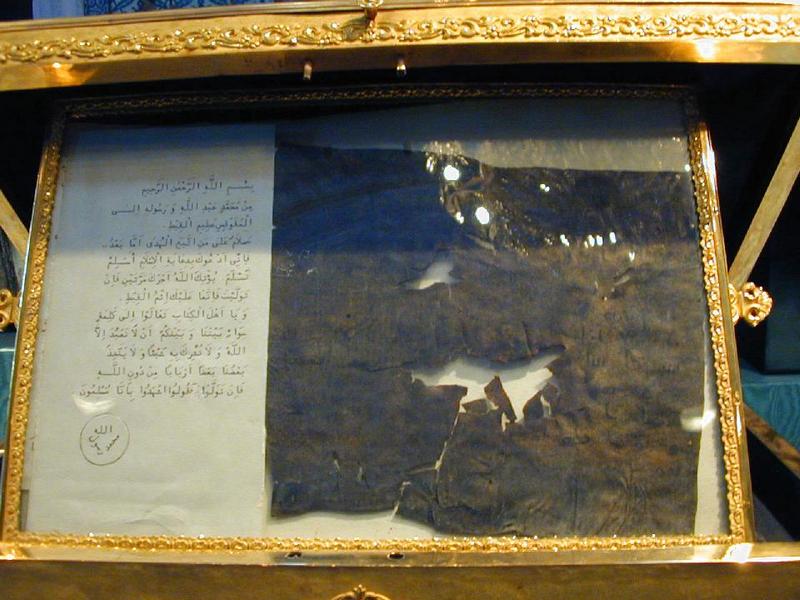 بِسْمِ اللَّهِ الرَّحْمٰنِ الرَّحِيمِ
مِنْ مُحَمَّدٍ عَبْدِ اللَّهِ وَ رَسُولِهِ إِلَــى
الْمُقَوْقِسِ عَظِيمِ الْقِبْطِ.
سَلَامٌ عَلَى مَنِ اتَّبَعَ الْهُدَى أَمَّا بَعْدُ..
فَإِنِّي أَدْعُوكَ بِدِعَايَةِ الْإِسْلَامِ أَسْلِمْ
تَسْلَمْ يُؤْتِكَ اللَّهُ أَجْرَكَ مَرَّتَيْنِ فَإِنْ
تَوَلَّيْتَ فَإِنَّمَا عَلَيْكَ إِثْمُ الْقِبْطِ.
وَ يَا أَهْلَ الْكِتَابِ تَعَالَوْا إِلَى كَلِمَةٍ
سَوَاءٍ بَيْنَنَا وَ بَيْنَكُمْ أَنْ لَا نَعْبُدَ إِلَّا
اللَّهَ وَ لَا نُشْرِكَ بِهِ شَيْئًا وَ لَا يَتَّخِذَ
بَعْضُنَا بَعْضًا أَرْبَابًا مِنْ دُونِ اللَّــهِ
فَإِنْ تَوَلَّوْا فَقُولُوا اشْهَدُوا بِأَنَّا مُسْلِمُونَ
الله
رسول
محمد